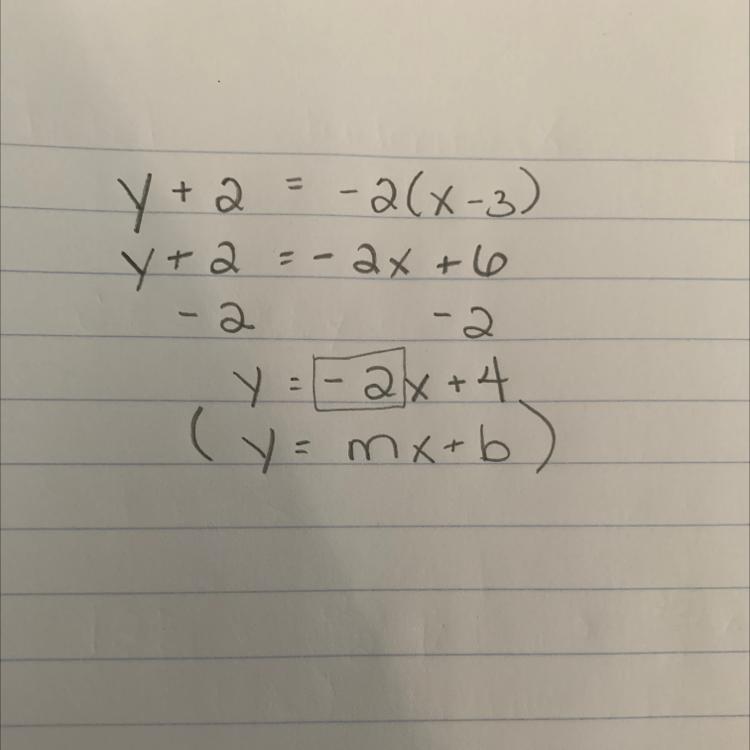 y + 2 = -2(x-3)
y + 2 = - 2x + 6
- 2 - 2
y = - 2x + 4
( y = mx + b )